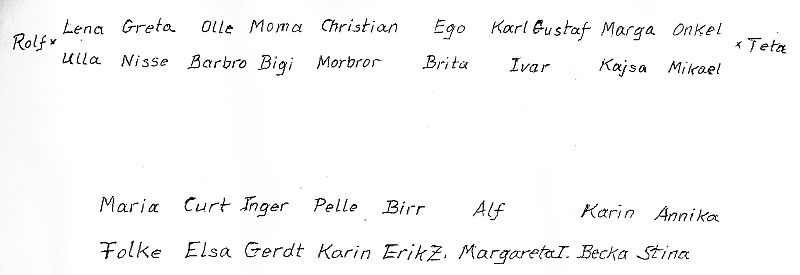 Lena Greta Olle Moma Christian Ego Karl Gustaf Marga Onkel
Rolf x x Teta
Ulla Nisse Barbro Bigi Morbror Brita Ivar Kajsa Mikael
Maria Curt Inger Pelle Birr Alf Karin Annika
Folke Elsa Gerdt Karin Erik Z. Margareta I. Becka Stina